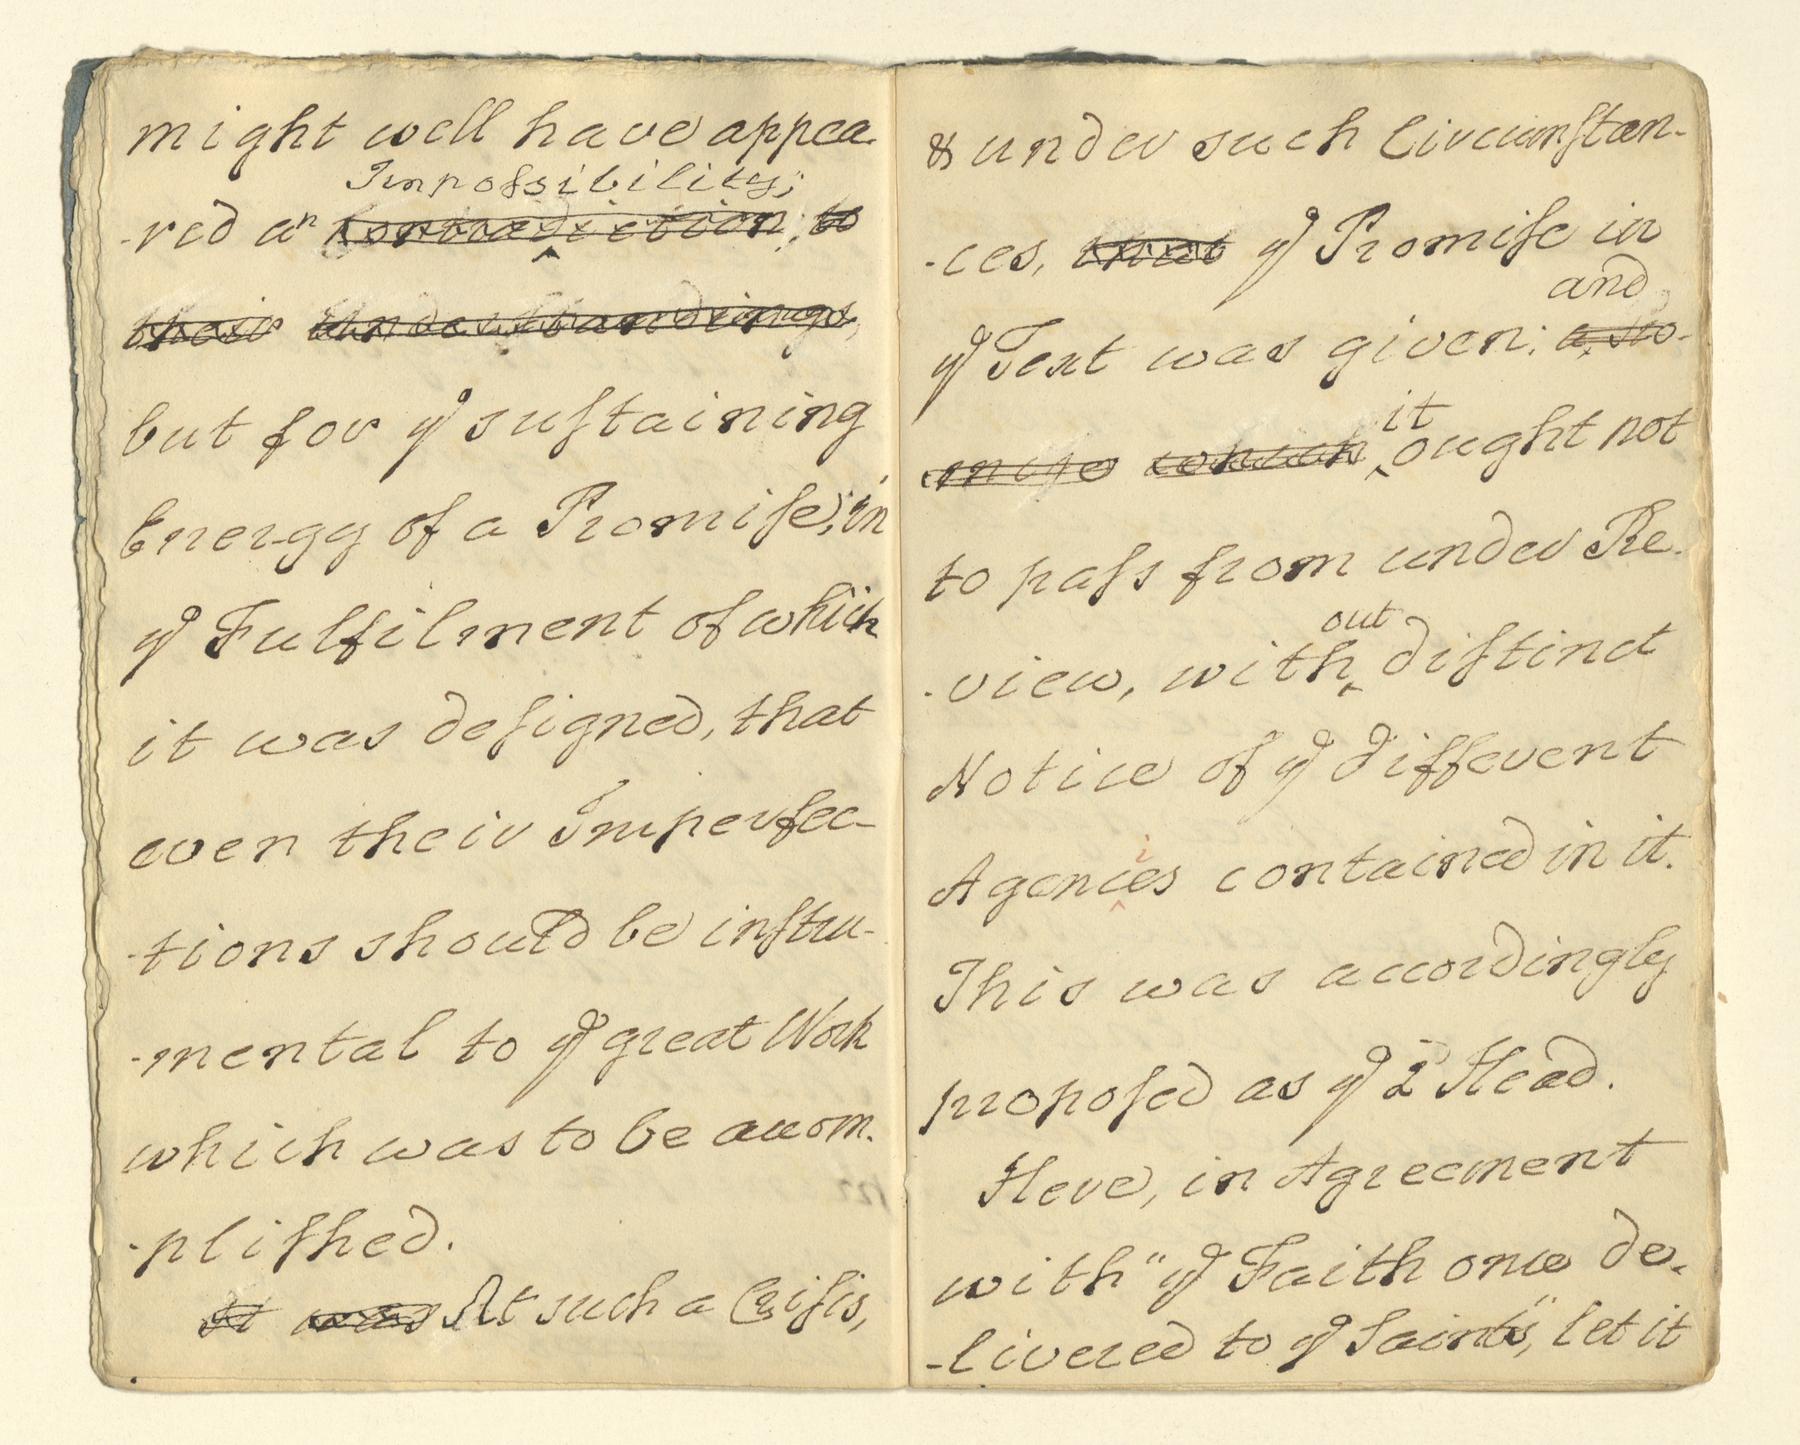 might well have appea-
Impossibility;
-red an Contradiction; to
their Understandings,
but for yͤ sustaining
Energy of a Promise, in
yͤ Fulfilment of which
it was designed, that
even their Imperfec-
-tions should be instru-
-mental to yͤ great Work
which was to be accom-
-plished.
It was At such a Crisis,
& under such Circumstan-
-ces, that yͤ Promise in
and
yͤ Text was given:
it
which ought not
to pass from under Re-
out
-view, with distinct
Notice of yͤ different
i
Agences contained in it.
This was accordingly
proposed as yͤ 2ᵈ Head.
Here, in Agreement
with "yͤ Faith once de-
-livered to yͤ Saints", let it